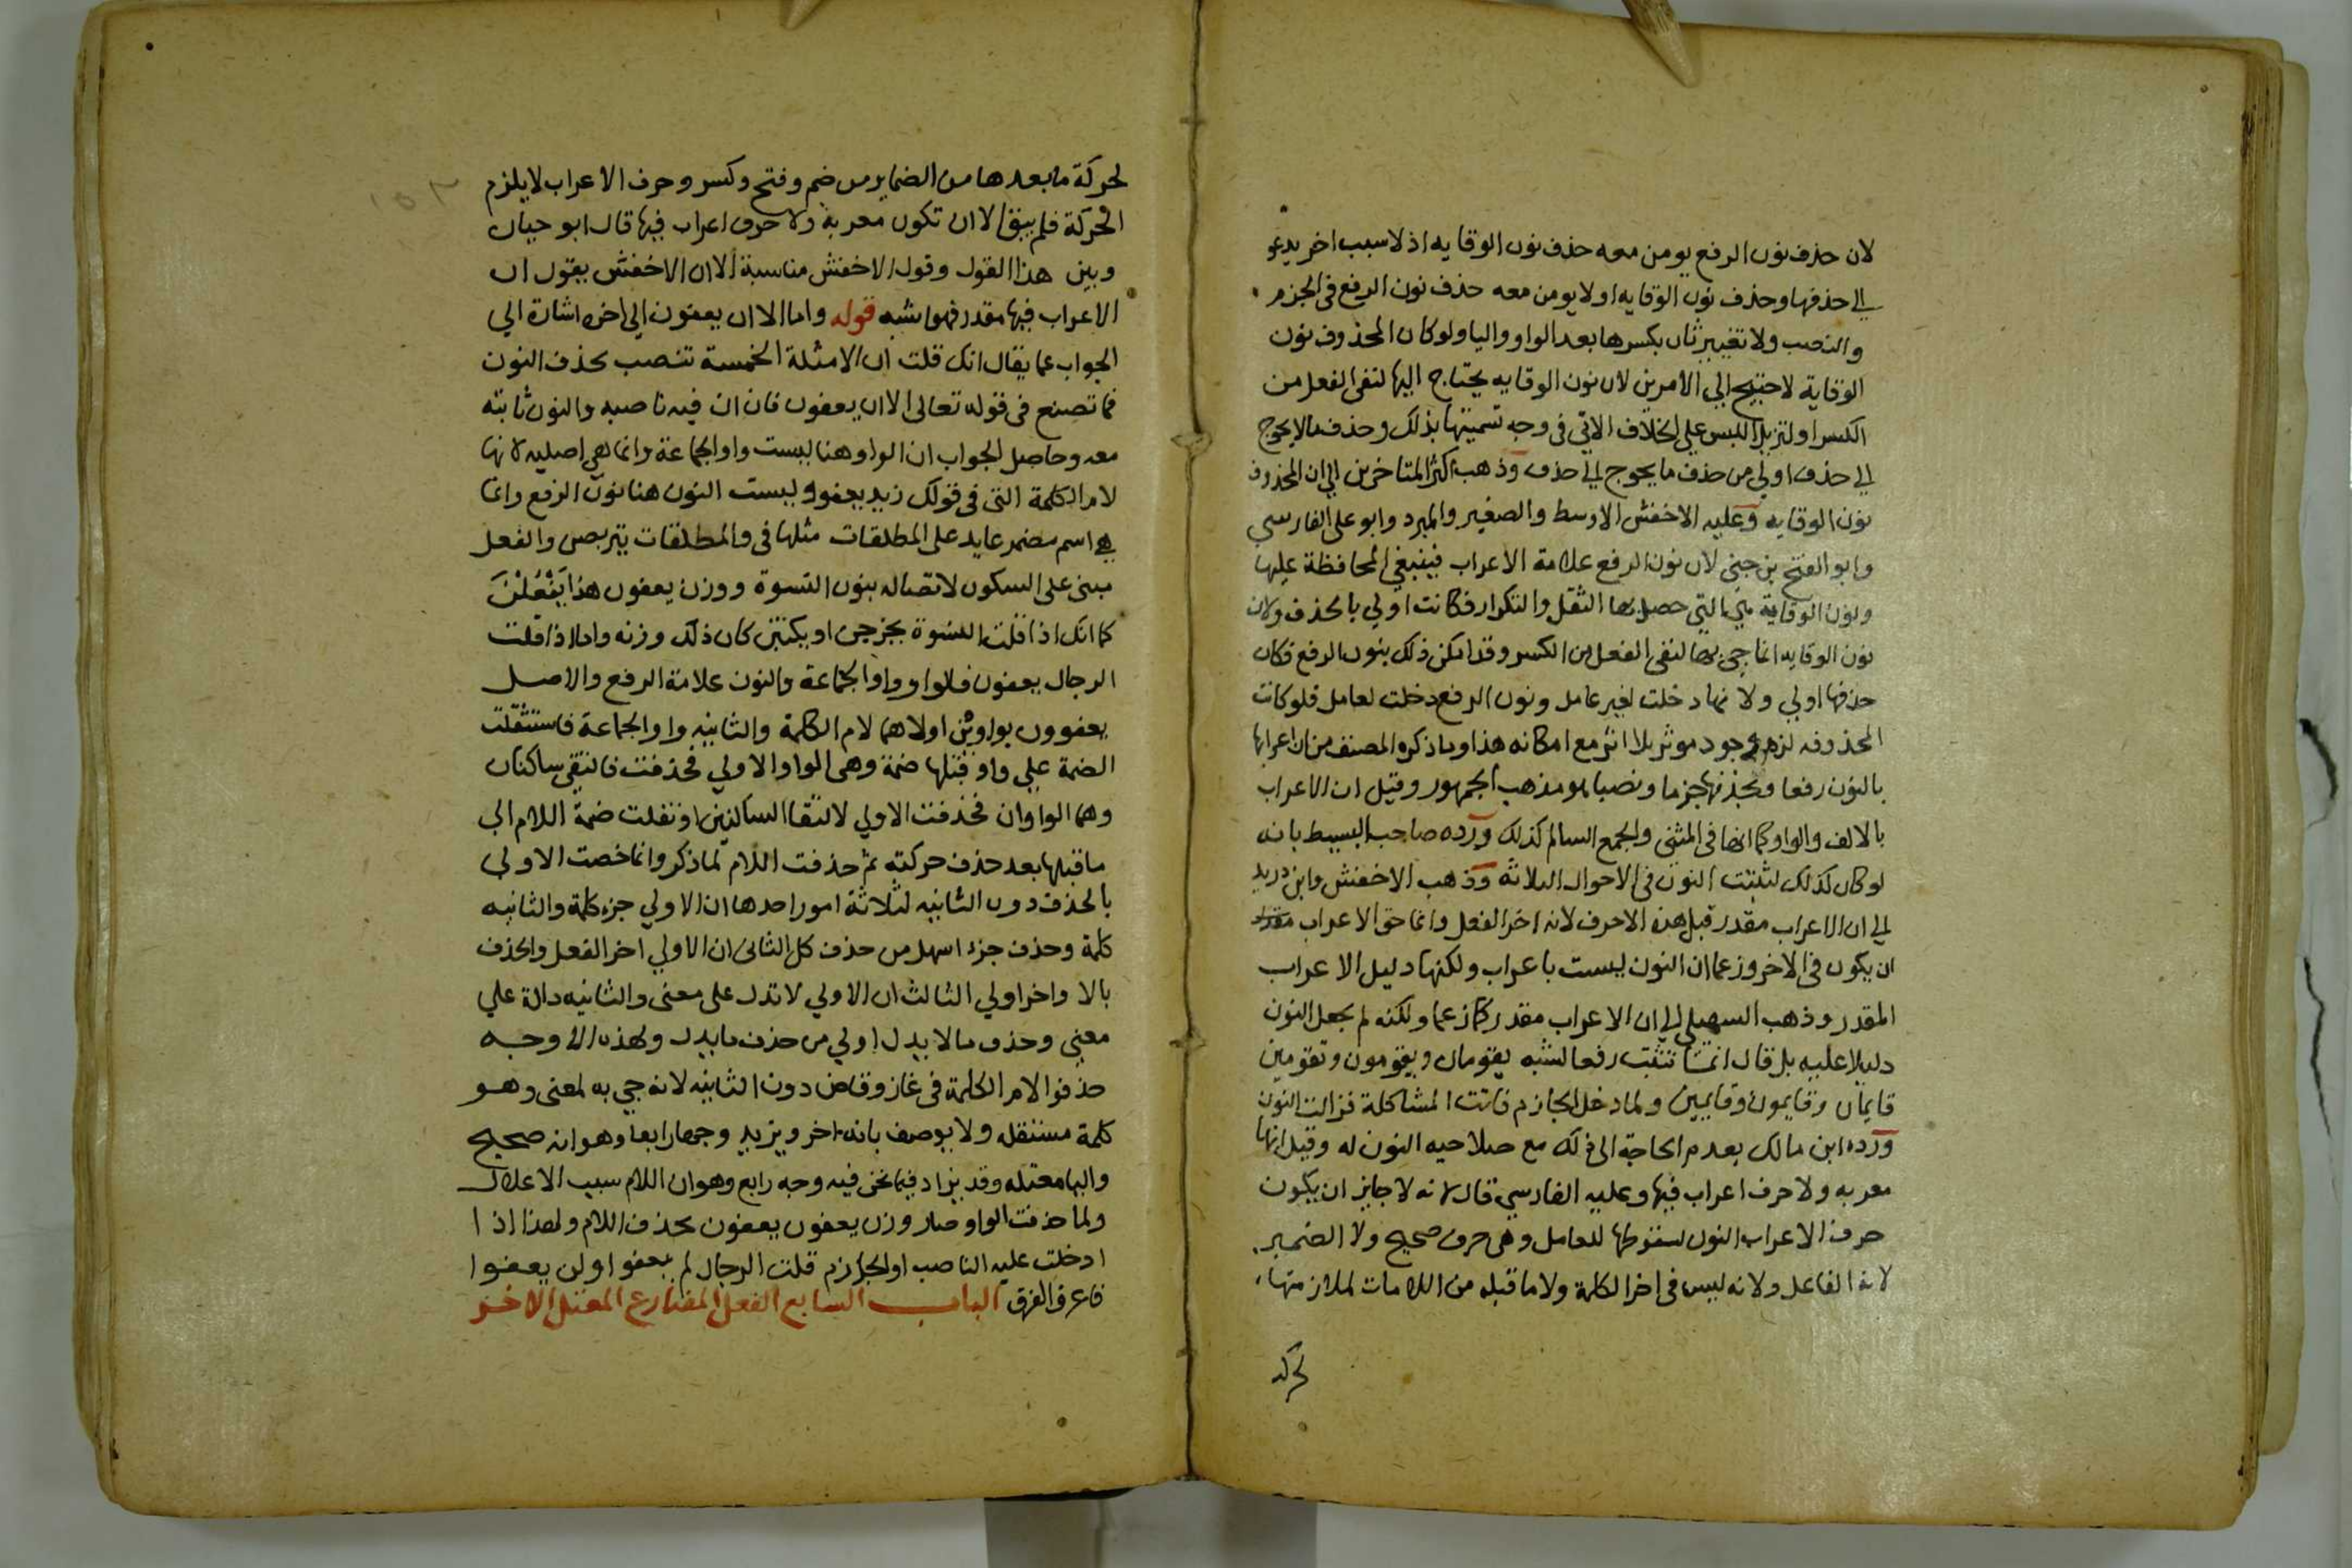 لان حذف نون الرفع يومن معه حذف نون الوقايه اذ لا سبب اخر يدعو
الي حذفها وحذف نون الوقايه اولا يومن معه حذف نون الرفع في الجزم
والنصب ولا تغيير ثان بكسرها بعد الواو واليا ولو كان المحذوف نون
الوقاية لاحتيج الي الامرين لان نون الوقايه يحتاج اليها لتقي الفعل من
الكسر او لتزيل اللبس علي الخلاف الاتي في وجه تسميتها بذلك وحذف ما لا يحوج
الي حذف اولي من حذف ما يحوج الي حذف وذهب اكثر المتاخرين الي ان المحذوف
نون الوقايه وعليه الاخفش الاوسط والصغير والمبرد وابو علي الفارسي
وابو الفتح بن جني لان نون الرفع علامة الاعراب فينبغي المحافظة عليها
ونون الوقاية هي التي حصل بها الثقل والتكرار فكانت اولي بالحذف ولان
نون الوقايه انما جي بها لتقي الفعل من الكسر وقد امكن ذلك بنون الرفع فكان
حذفها اولي ولانها دخلت لغير عامل ونون الرفع دخلت لعامل فلو كانت
المحذوفه لزم وجود موثر بلا اثر مع امكانه هذا وما ذكره المصنف من ان اعرابها
بالنون رفعا وبحذفها جزما ونصبا هو مذهب الجمهور وقيل ان الاعراب
بالالف والواو كما انها في المثني والجمع السالم كذلك ورده صاحب البسيط بانه
لو كان كذلك لثبتت النون في الاحوال الثلاثة وذهب الاخفش وابن دريد
الي ان الاعراب مقدر قبل هذه الاحرف لانه اخر الفعل وانما حق الاعراب
ان يكون في الاخر وزعما ان النون ليست باعراب ولكنها دليل الاعراب
المقدر وذهب السهيلي الي ان الاعراب مقدر كما زعما ولكنه لم يجعل النون
دليلا عليه بل قال انما تثبت رفعا لشبه يقومان ويقومون وتقومين
قايمان وقايمون وقايمين ولما دخل الجازم فاتت المشاكلة فزالت النون
ورده ابن مالك بعدم الحاجة الي ذلك مع صلاحيه النون له وقيل انها
معربه ولا حرف اعراب فيها وعليه الفارسي قال لانه لا جايز ان يكون
حرف الاعراب النون لسقوطها للعامل وهي حرف صحيح ولا الضمير
لانه الفاعل ولانه ليس في اخر الكلمة ولا ما قبله من اللامات لملازمتها
لحركة
لحركة ما بعدها من الضماير من ضم وفتح وكسر وحرف الاعراب لا يلزم
الحركة فلم يبق الا ان تكون معربة ولا حرف اعراب فيها قال ابو حيان
وبين هذا القول وقول الاخفش مناسبة الا ان الاخفش يقول ان
الاعراب فيها مقدر فهو اشبه قوله واما الا ان يعفون الي اخره اشارة الي
الجواب عما يقال انك قلت ان الامثلة الخمسة تنصب بحذف النون
فما تصنع في قوله تعالي الا ان يعفون فان ان فيه ناصبه والنون ثابته
معه وحاصل الجواب ان الواو هنا ليست واو الجماعة وانما هي اصليه لانها
لام الكلمة التي في قولك زيد يعفو وليست النون هنا نون الرفع وانما
هي اسم مضمر عايد علي المطلقات مثلها في والمطلقات يتربصن والفعل
مبني علي السكون لاتصاله بنون النسوة ووزن يعفون هذا يَفْعُلْنَ
كما انك اذا قلت النسوة يخرجن او يكتبن كان ذلك وزنه واما اذا قلت
الرجال يعفون فالواو واو الجماعة والنون علامة الرفع والاصل
يعفوون بواوين اولاهما لام الكلمة والثانيه واو الجماعة فاستثقلت
الضمة علي واو قبلها ضمة وهي الواو الاولي فحذفت فالتقي ساكنان
وهما الواوان فحذفت الاولي لالتقا الساكنين او نقلت ضمة اللام الي
ما قبلها بعد حذف حركته ثم حذفت اللام لما ذكر وانما خصت الاولي
بالحذف دون الثانيه لثلاثة امور احدها ان الاولي جزء كلمة والثانيه
كلمة وحذف جزء اسهل من حذف كل الثاني ان الاولي اخر الفعل والحذف
بالاواخر اولي الثالث ان الاولي لا تدل علي معني والثانيه دالة علي
معني وحذف ما لا يدل اولي من حذف ما يدل ولهذه الاوجه
حذفوا لام الكلمة في غاز وقاض دون الثانيه لانه جي به لمعني وهو
كلمة مستقله ولا يوصف بانه اخر ويزيد وجها رابعا وهو انه صحيح
واليا معتله وقد يزاد فيما نحن فيه وجه رابع وهو ان اللام سبب الاعلال
ولما حذفت الواو صار وزن يعفون يعفون بحذف اللام ولهذا اذا
ادخلت عليه الناصب او الجازم قلت الرجال لم يعفوا ولن يعفوا
فاعرف الفرق الباب السابع الفعل المضارع المعتل الاخر